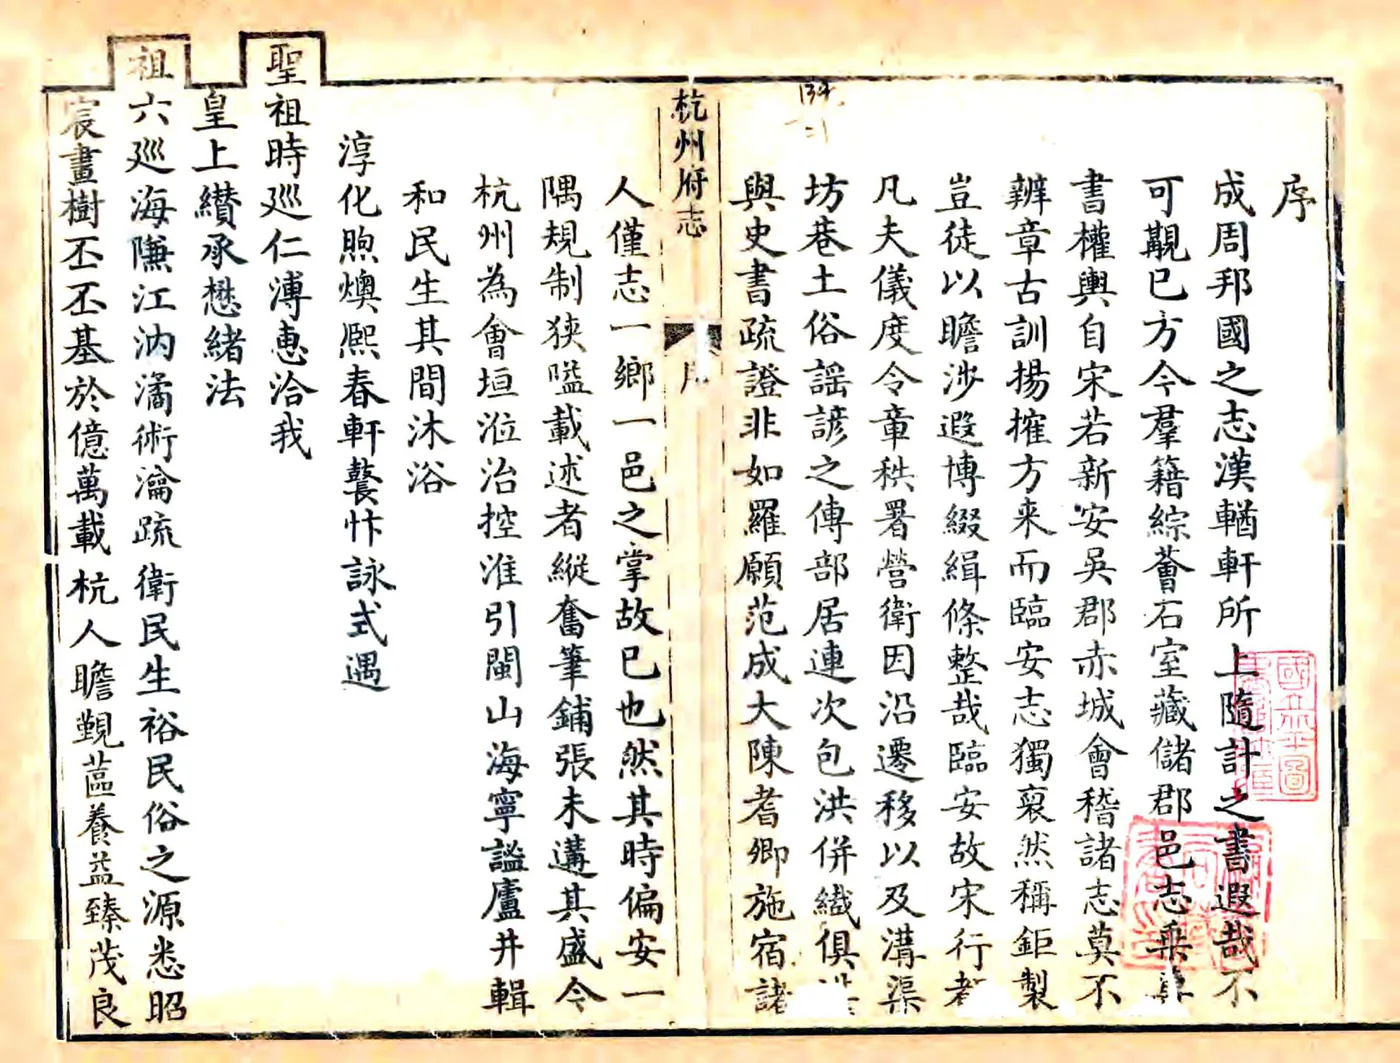 序
成周邦國之志漢輶軒所上隨計之書遐哉不
可覯已方今羣籍綜薈石室藏儲郡邑志乘
書權輿自宋若新安吳郡赤城會稽諸志莫不
辨章古訓揚搉方来而臨安志獨裒然稱鉅製
豈徒以瞻涉遐博綴緝條整哉臨安故宋行
凡夫儀度令章秩署營衛因沿遷移以及溝渠
坊巷土俗謡諺之傳部居連次包洪併纖俱
與史書疏證非如羅願范成大陳耆卿施宿諸
杭州府志
序
人僅志一鄉一邑之掌故已也然其時偏安一
隅規制狹隘載述者縱奮筆鋪張未遘其盛今
杭州為會垣涖治控淮引閩山海寧謐廬井輯
和民生其間沐浴
淳化煦燠熈春軒鼚忭詠式遇
聖祖時廵仁溥惠洽我
皇上纘承懋緒法
祖六廵海隒江汭潏術瀹疏衛民生裕民俗之源悉昭
宸畫樹丕丕基於億萬載杭人瞻覲蘁養益臻茂良
134